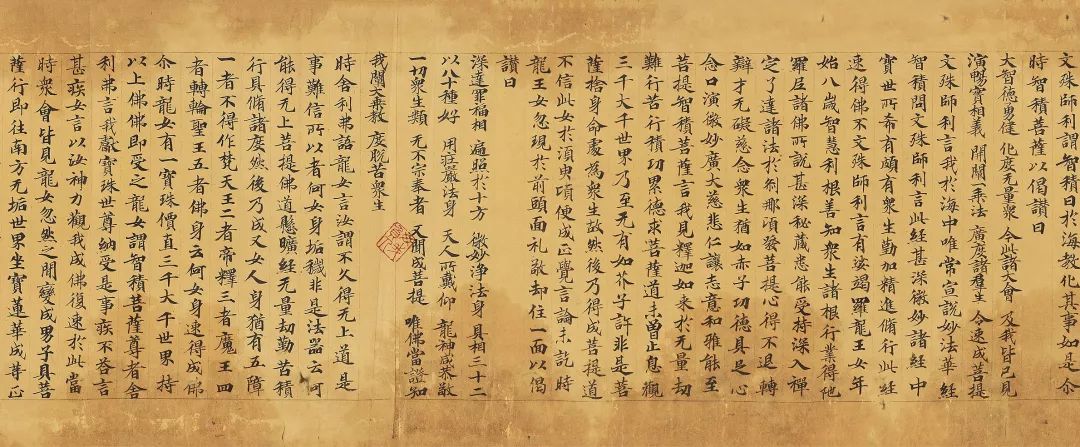 文殊師利謂智積曰於海教化其事如是尒
時智積菩薩以偈讚曰
大智德勇健 化度无量衆 今此諸大會 及我皆已見
演暢實相義 開闡一乘法 廣度諸羣生 令速成菩提
文殊師利言我於海中唯常宣說妙法華經
智積問文殊師利言此經甚深微妙諸經中
寶世所希有頗有衆生勤加精進脩行此經
速得佛不文殊師利言有娑竭羅龍王女年
始八歲智慧利根善知衆生諸根行業得陁
羅尼諸佛所說甚深秘藏悉能受持深入禪
定了達諸法於剎那頃發菩提心得不退轉
辯才无礙慈念衆生猶如赤子功德具足心
念口演微妙廣大慈悲仁讓志意和雅能至
菩提智積菩薩言我見釋迦如來於无量劫
難行苦行積功累德求菩薩道未曾止息觀
三千大千世界乃至无有如芥子許非是菩
薩捨身命處為衆生故然後乃得成菩提道
不信此女於須臾頃便成正覺言論未訖時
龍王女忽現於前頭面礼敬却住一面以偈
讚曰
深達罪福相 遍照於十方 微妙淨法身 具相三十二
以八十種好 用莊嚴法身 天人所戴仰 龍神咸恭敬
一切衆生類 无不宗奉者 又聞成菩提 唯佛當證知
我闡大乘教 度脫苦衆生
時舍利弗語龍女言汝謂不久得无上道是
事難信所以者何女身垢穢非是法器云何
能得无上菩提佛道懸曠經无量劫勤苦積
行具脩諸度然後乃成又女人身猶有五障
一者不得作梵天王二者帝釋三者魔王四
者轉輪聖王五者佛身云何女身速得成佛
尒時龍女有一寶珠價直三千大千世界持
以上佛佛即受之龍女謂智積菩薩尊者舍
利弗言我獻寶珠世尊納受是事疾不荅言
甚疾女言以汝神力觀我成佛復速於此當
時衆會皆見龍女忽然之間變成男子具菩
薩行即往南方无垢世界坐寶蓮華成等正